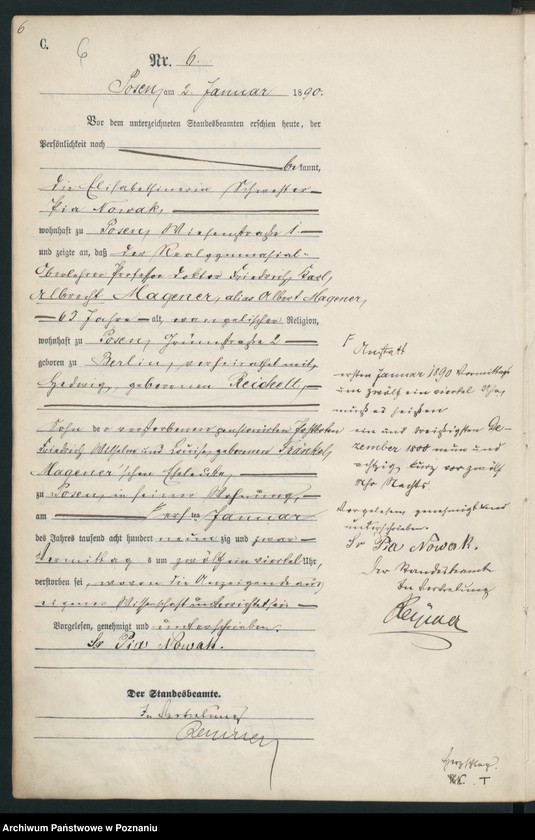 6
C.
6
Nr. 6.
Posen, am 2. Januar 1890.
Vor dem unterzeichneten Standesbeamten erschien heute, der
Persönlichkeit nach
bekannt,
die Elisabethinerin Schwester
Pia Nowak,
wohnhaft zu Posen, Wiesenstraße 1
und zeigte an, daß der Realgymnasial-
Oberlehrer Professor Doktor Friedrich, Karl,
Albrecht Magener, alias Albert Magener,
63 Jahre alt, evangelischer Religion,
wohnhaft zu Posen, Grünstraße 2
geboren zu Berlin, verheirathet mit
Hedwig, geborenen Reichelt,
Sohn der verstorbenen pensionirten Postboten
Friedrich Wilhelm und Louise, geborenen Fränkel,
Magener'schen Eheleute,
zu Posen, in seiner Wohnung,
am Januar
des Jahres tausend acht hundert neunzig und zwar
Vormittags um zwölf ein viertel Uhr,
verstorben sei, wovon die Anzeigende aus
eigener Wissenschaft unterrichtet sei
Vorgelesen, genehmigt und unterschrieben.
Sr Pia Nowak.
Der Standesbeamte.
In Vertretung
Anstatt
ersten Januar 1890 Vormittags
um zwölf ein viertel Uhr,
muß es heißen
ein und dreißigsten De-
zember 1800 neun und
achtzig kurz vor zwölf
Uhr Nachts
Vorgelesen genehmigt und
unterschrieben.
Sr Pia Nowak.
Der Standesbeamte
In Vertretung
Archiwum Państwowe w Poznaniu